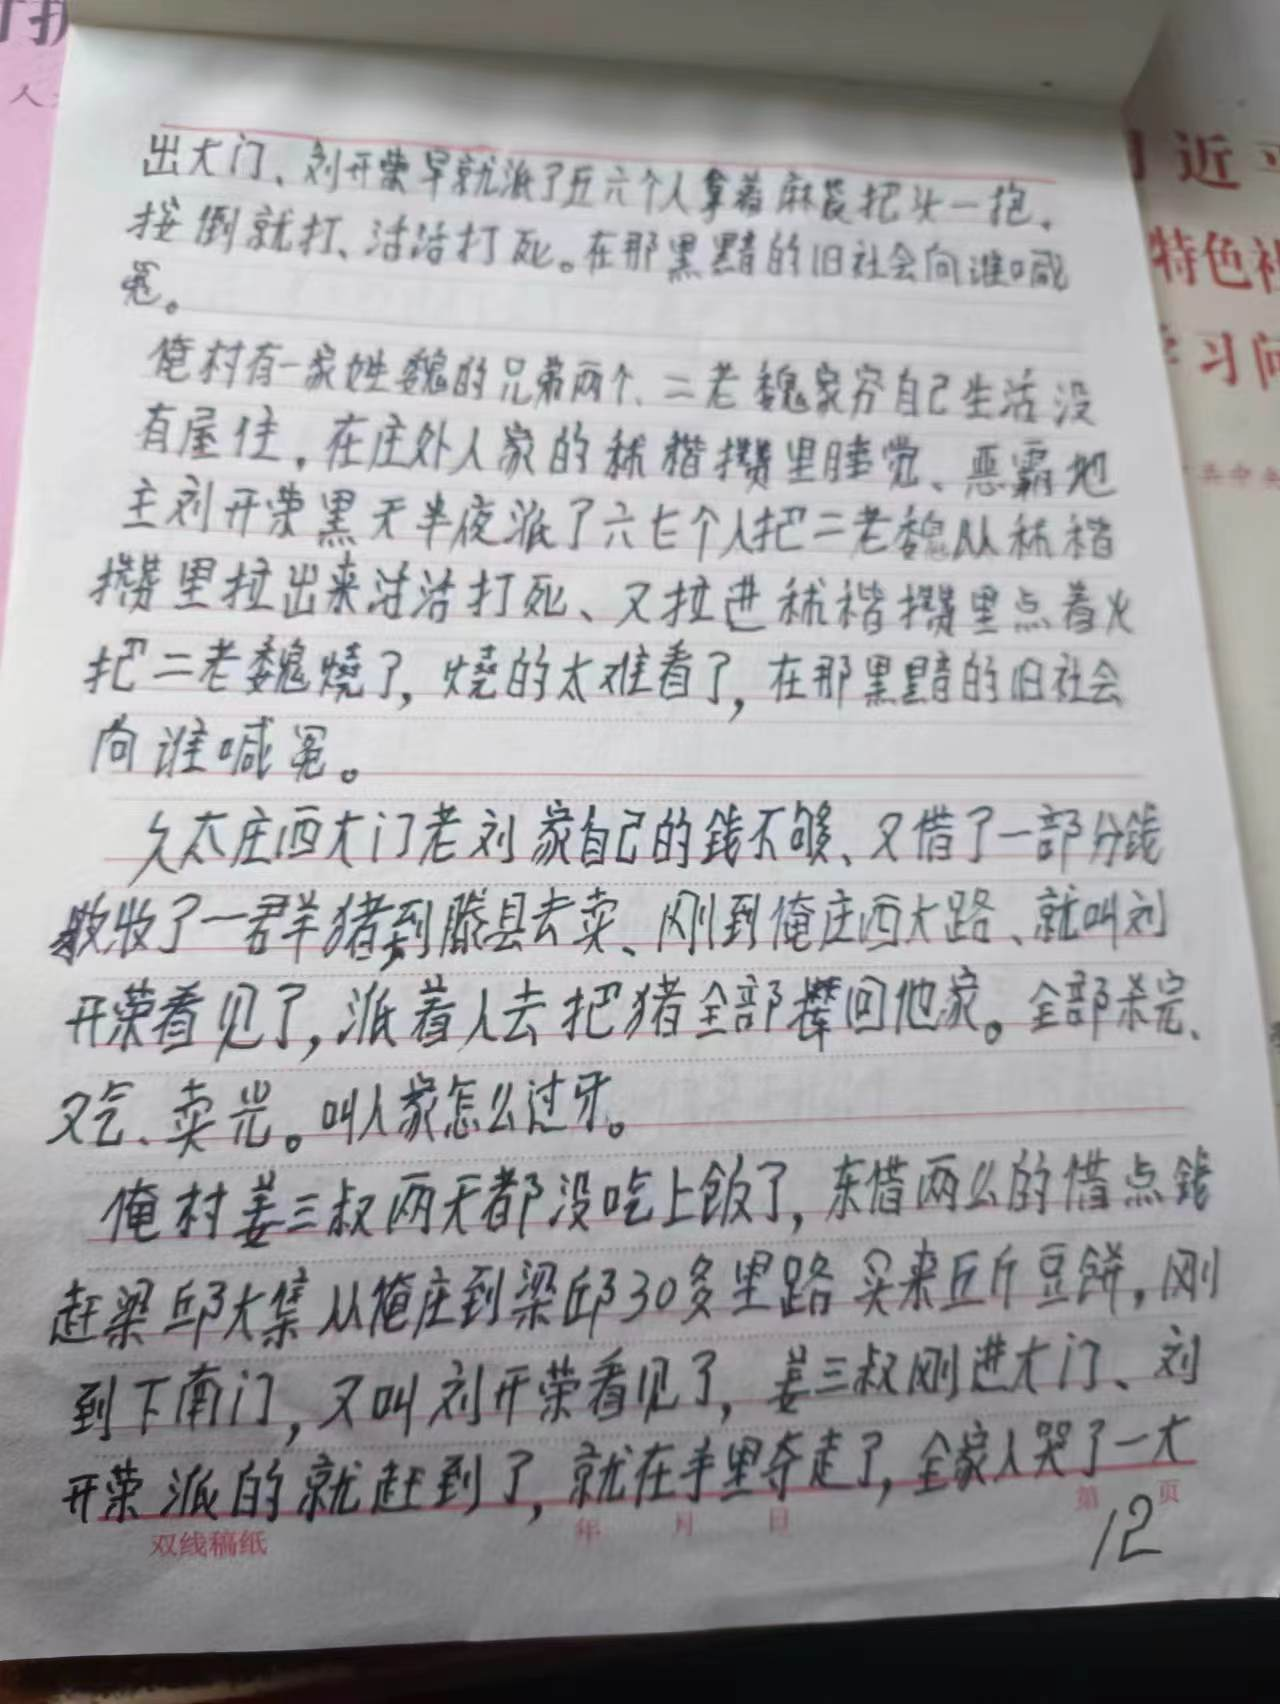 出大门、刘开荣早就派了五六个人拿着麻袋把头一抱、
按倒就打、活活打死。在那黑黯的旧社会向谁喊
冤。
俺村有一家姓魏的兄弟两个、二老魏家穷自己生活没
有屋住，在庄外人家的秫秸攒里睡觉、恶霸地
主刘开荣黑天半夜派了六七个人把二老魏从秫秸
攒里拉出来活活打死、又拉进秫秸攒里点着火
把二老魏烧了，烧的太难看了，在那黑黯的旧社会
向谁喊冤。
久太庄西大门老刘家自己的钱不够、又借了一部分钱
收了一群猪到滕县去卖、刚到俺庄西大路、就叫刘
开荣看见了，派着人去把猪全部撵回他家。全部杀完、
又乞、卖光。叫人家怎么过牙。
俺村姜三叔两天都没吃上饭了，东借两么的借点钱
赶梁邱大集从俺庄到梁邱30多里路买来五斤豆饼，刚
到下南门，又叫刘开荣看见了，姜三叔刚进大门、刘
开荣派的就赶到了，就在手里夺走了，全家人哭了一大
双线稿纸
年 月 日
第 12 页
习近平
特色社
学习问
中共中央
人